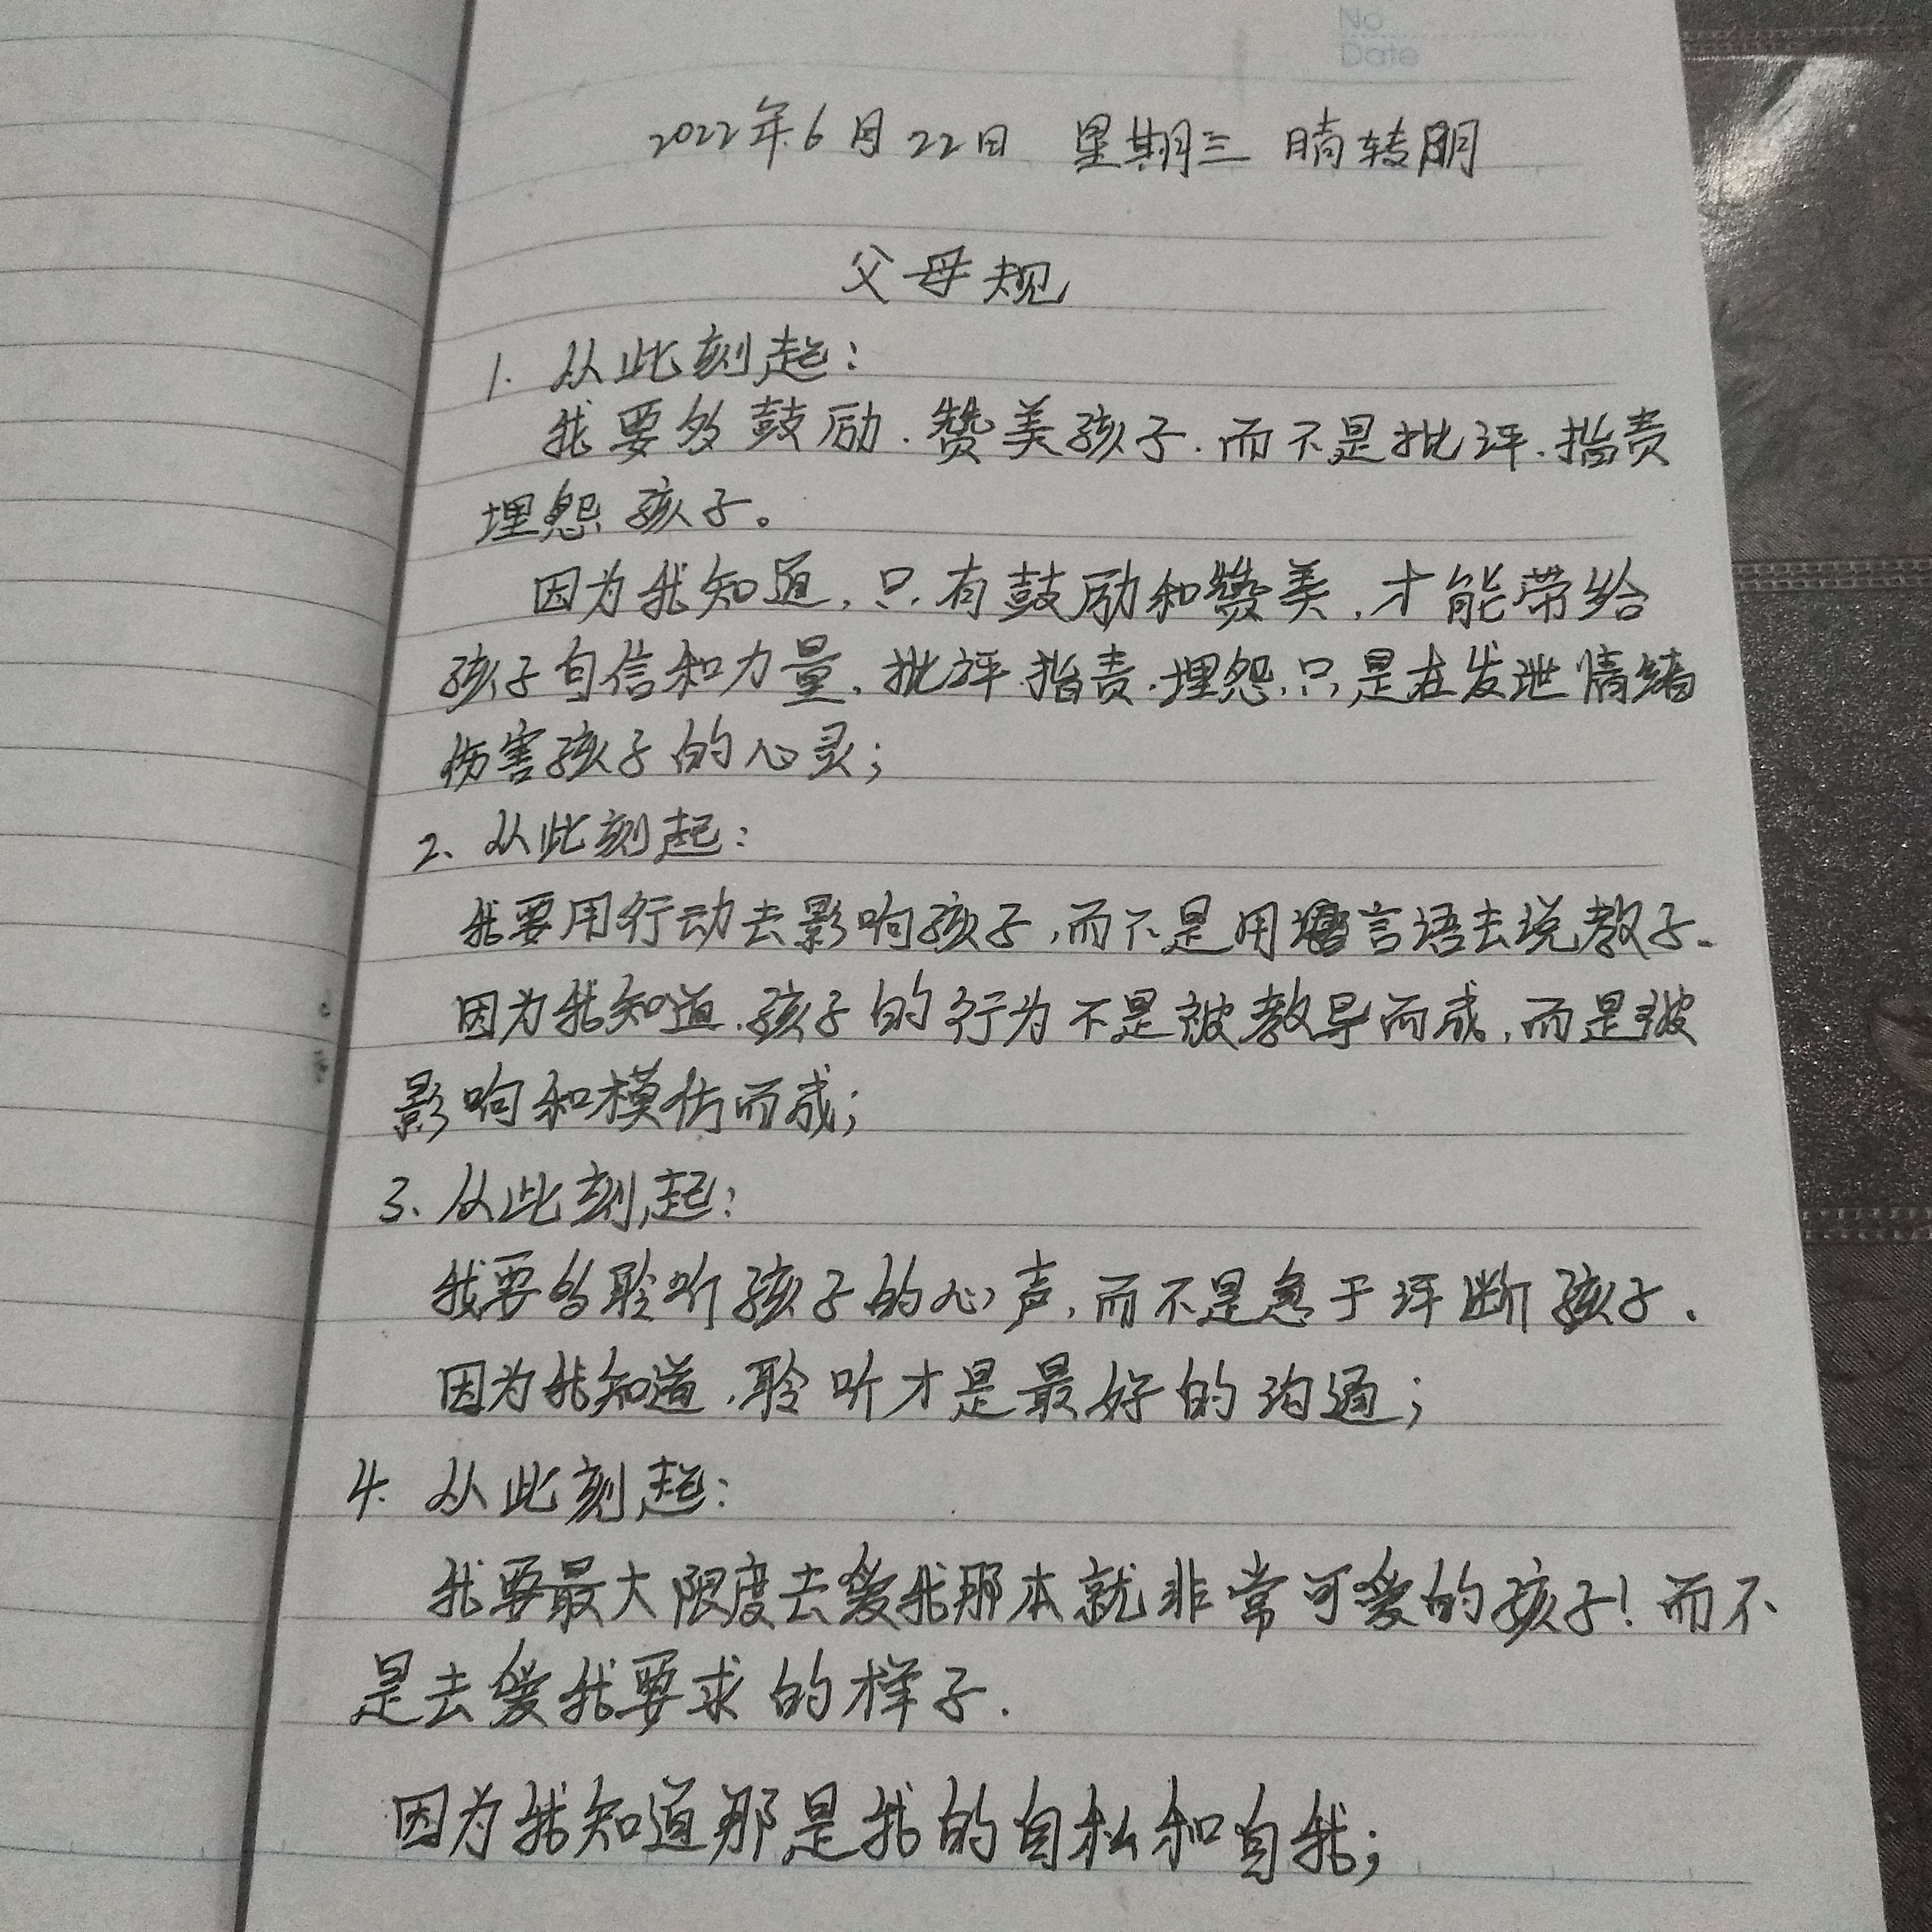 No
Date
2022年6月22日 星期三 晴转阴
父母规
1. 从此刻起:
我要多鼓励.赞美孩子.而不是批评.指责
埋怨孩子。
因为我知道,只有鼓励和赞美,才能带给
孩子自信和力量.批评.指责.埋怨,只是在发泄情绪
伤害孩子的心灵;
2、从此刻起:
我要用行动去影响孩子,而不是用言语去说教子.
因为我知道.孩子的行为不是被教导而成,而是被
影响和模仿而成;
3、从此刻起:
我要多聆听孩子的心声,而不是急于评断孩子.
因为我知道,聆听才是最好的沟通;
4. 从此刻起:
我要最大限度去爱我那本就非常可爱的孩子!而不
是去爱我要求的样子.
因为我知道那是我的自私和自我;